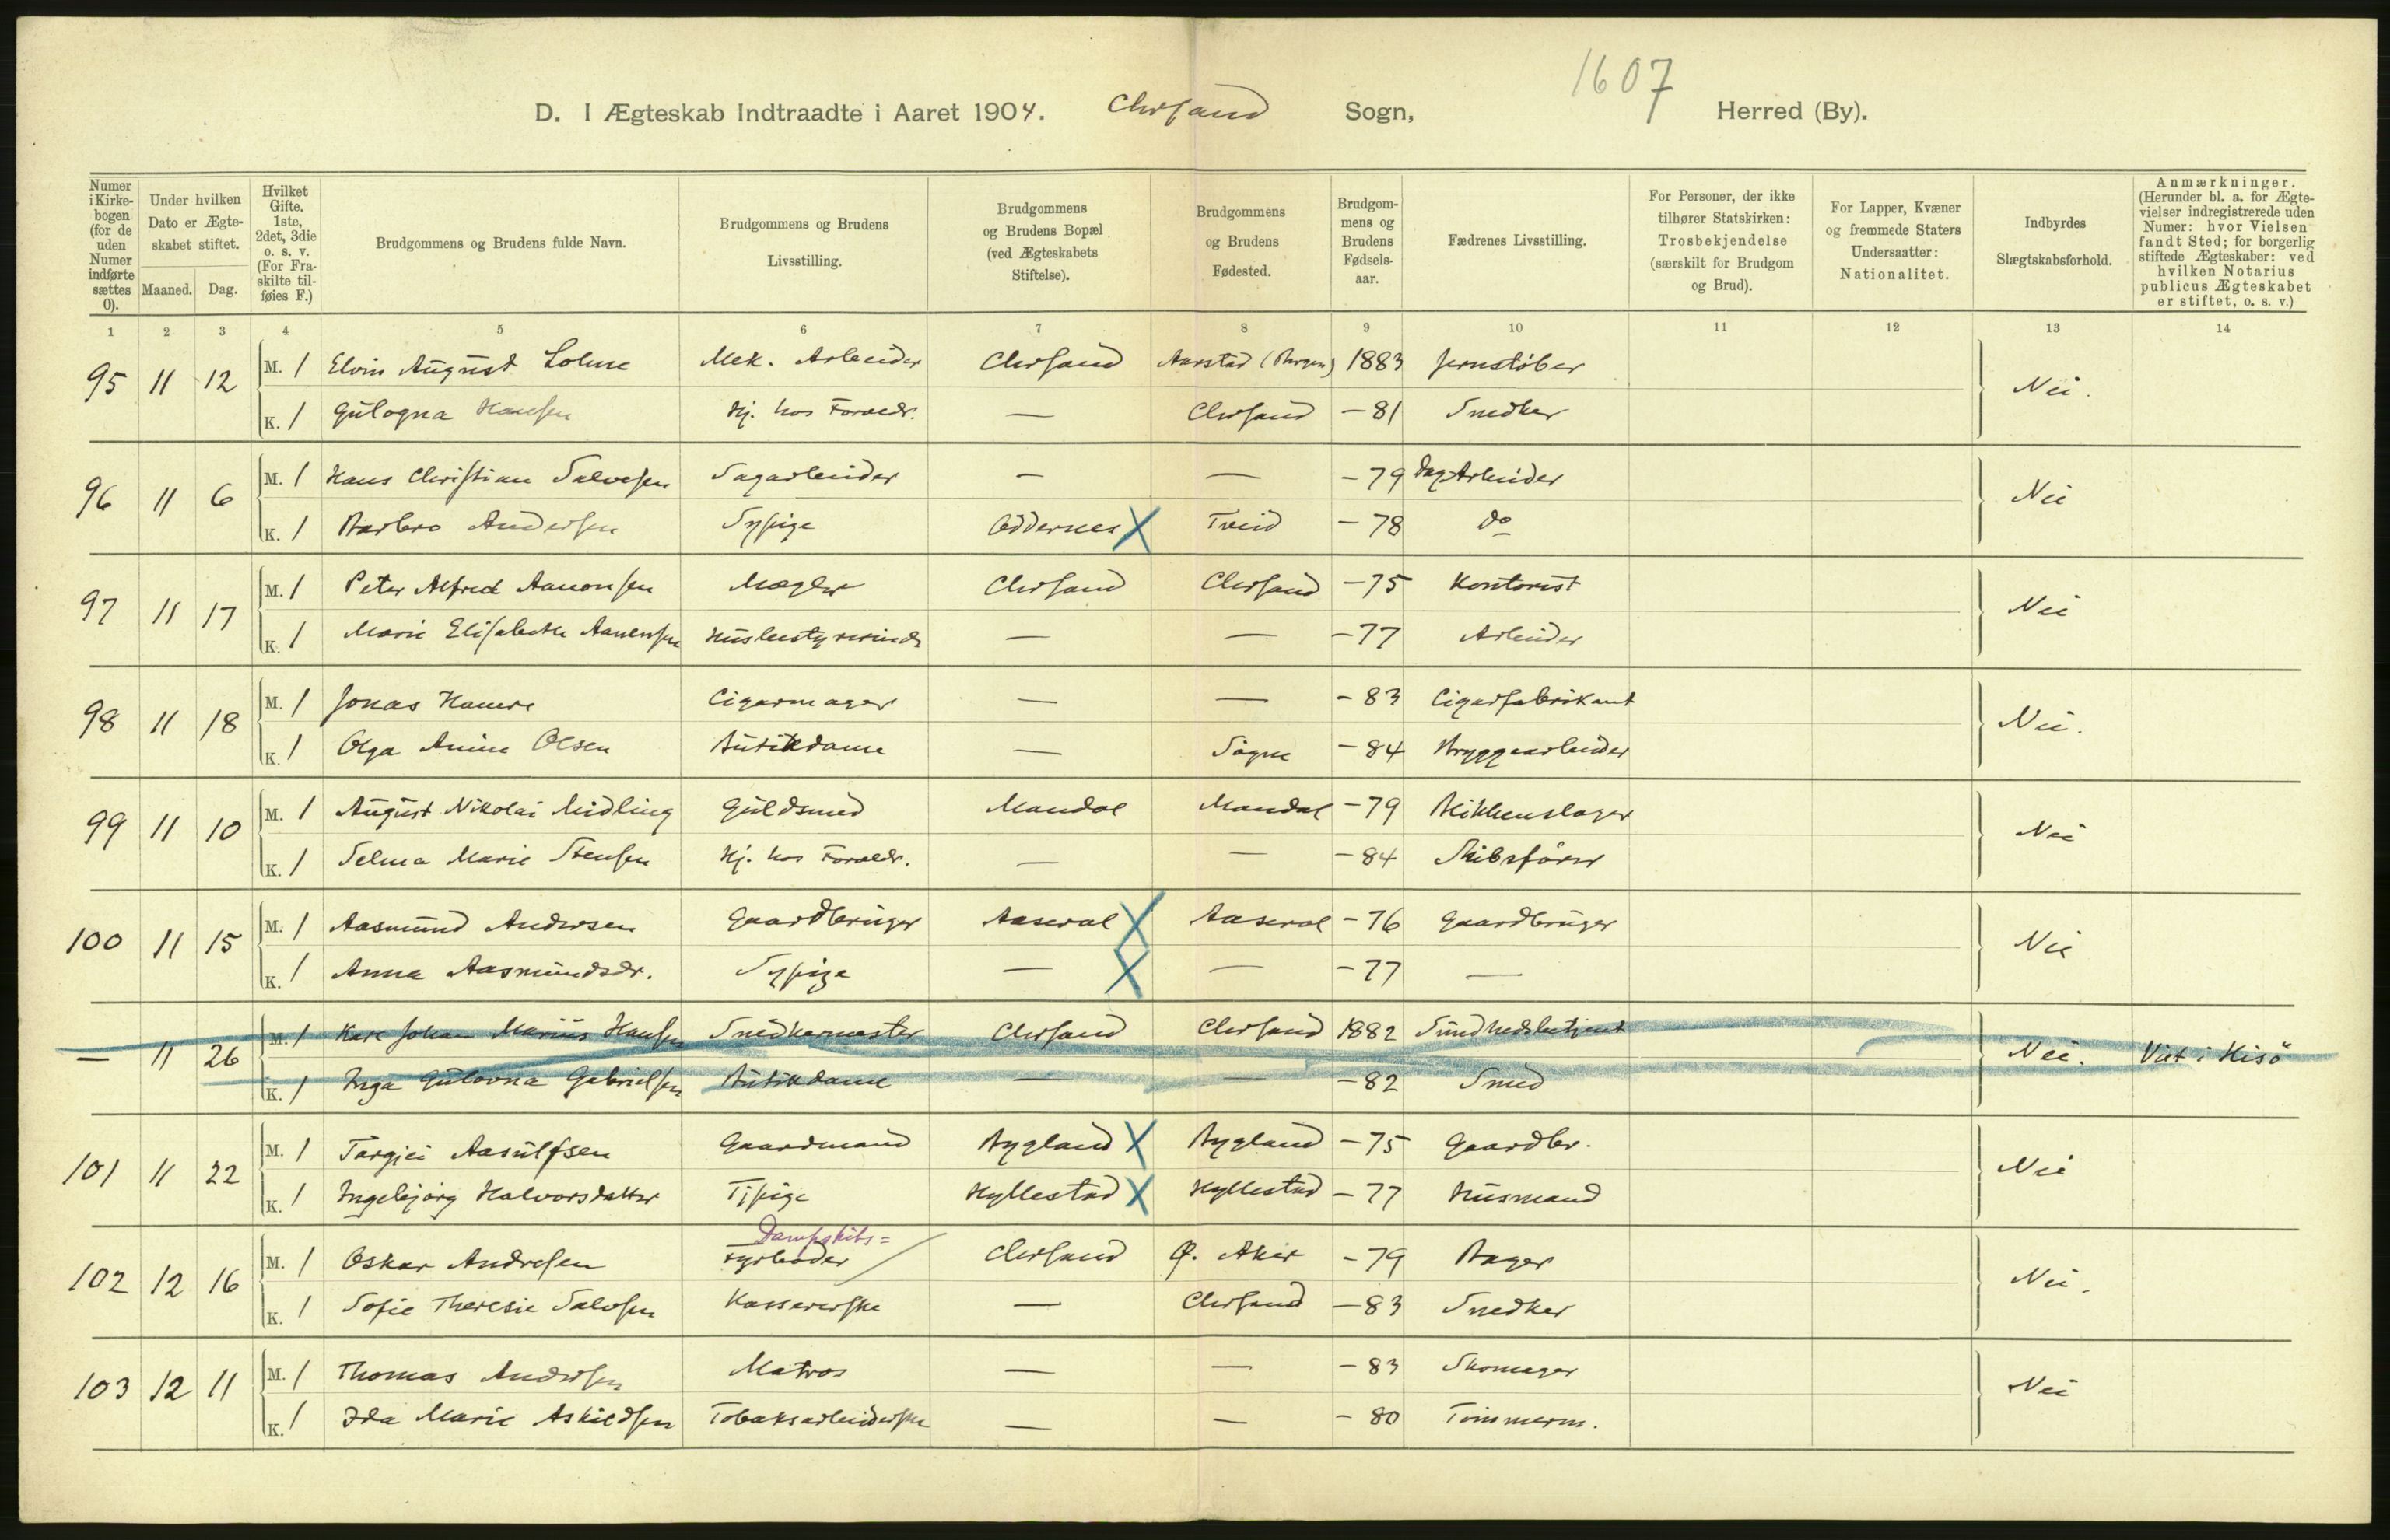 1607
D. I Ægteskab Indtraadte i Aaret 1904. Chrsand Sogn, Herred (By).
Numer i Kirke-bogen (for de uden Numer indførte sættes 0). Under hvilken Dato er Ægte-skabet stiftet. Maaned. Dag. Hvilket Gifte. 1ste, 2det, 3die o. s. v. (For Fra-skilte til-føies F.) Brudgommens og Brudens fulde Navn. Brudgommens og Brudens Livsstilling. Brudgommens og Brudens Bopæl (ved Ægteskabets Stiftelse). Brudgommens og Brudens Fødested. Brudgom-mens og Brudens Fødsels-aar. Fædrenes Livsstilling. For Personer, der ikke tilhører Statskirken: Trosbekjendelse (særskilt for Brudgom og Brud). For Lapper, Kvæner og fremmede Staters Undersaatter: Nationalitet. Indbyrdes Slægtskabsforhold. Anmærkninger. (Herunder bl. a. for Ægte-vielser indregistrerede uden Numer: hvor Vielsen fandt Sted; for borgerlig stiftede Ægteskaber: ved hvilken Notarius publicus Ægteskabet er stiftet, o. s. v.)
1 2 3 4 5 6 7 8 9 10 11 12 13 14
95 11 12 M. 1 Elvin August Lohne Mek. Arbeider Chrsand Aarstad (Bergen) 1883 Jernstøber Nei.
K. 1 Gulogna Hansen Hj. hos Foraeldr. — Chrsand -81 Snedker
96 11 6 M. 1 Hans Christian Salvesen Sagarbeider — — -79 Dag-Arbeider Nei
K. 1 Barbro Andersen Sypige Oddernes X Tveid -78 do
97 11 17 M. 1 Peter Alfred Aanonsen Mægler Chrsand Chrsand -75 Kontorist Nei
K. 1 Marie Elisabeth Aanensen Husbestyrerinde — — -77 Arbeider
98 11 18 M. 1 Jonas Hamre Cigarmager — — -83 Cigarfabrikant Nei.
K. 1 Olga Anine Olsen Butikdame — Søgne -84 Bryggearbeider
99 11 10 M. 1 August Nikolai Midling Guldsmed Mandal Mandal -79 Blikkenslager Nei
K. 1 Selma Marie Stensen Hj. hos Foraeldr. — — -84 Skibsfører
100 11 15 M. 1 Aasmund Andersen Gaardbruger Aaseral X Aaseral -76 Gaardbruger Nei
K. 1 Anna Aasmundsdr. Sypige — X — -77 —
— 11 26 M. 1 Karl Johan Marius Hansen Snedkermester Chrsand Chrsand 1882 Sundhedsbetjent Nei. Viet i Hisö
K. 1 Inga Gulovna Gabrielsen Butikdame — — -82 Smed
101 11 22 M. 1 Targjei Aasulfsen Gaardmand Bygland X Bygland -75 Gaardbr. Nei
K. 1 Ingebjørg Halvorsdatter Tjpige Hyllestad X Hyllestad -77 Husmand
Dampskibs=
102 12 16 M. 1 Oskar Andresen Fyrbøder Chrsand Ø. Aker -79 Bager Nei.
K. 1 Sofie Theresie Salvesen Kassererske — Chrsand -83 Snedker
103 12 11 M. 1 Thomas Andersen Matros — — -83 Skomager Nei
K. 1 Ida Marie Askildsen Tobaksarbeiderske — — -80 Tømmerm.